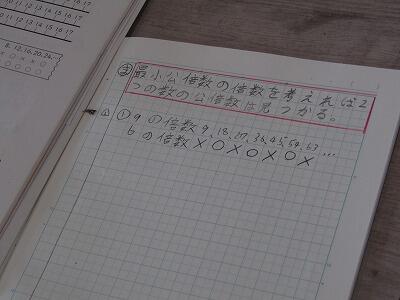 ま 最小公倍数の倍数を考えれば2
つの数の公倍数は見つかる。
① 9の倍数 9, 18, 27, 36, 45, 54, 63 …
6の倍数 × ○ × ○ × ○ ×
8, 12, 16, 20, 24, …